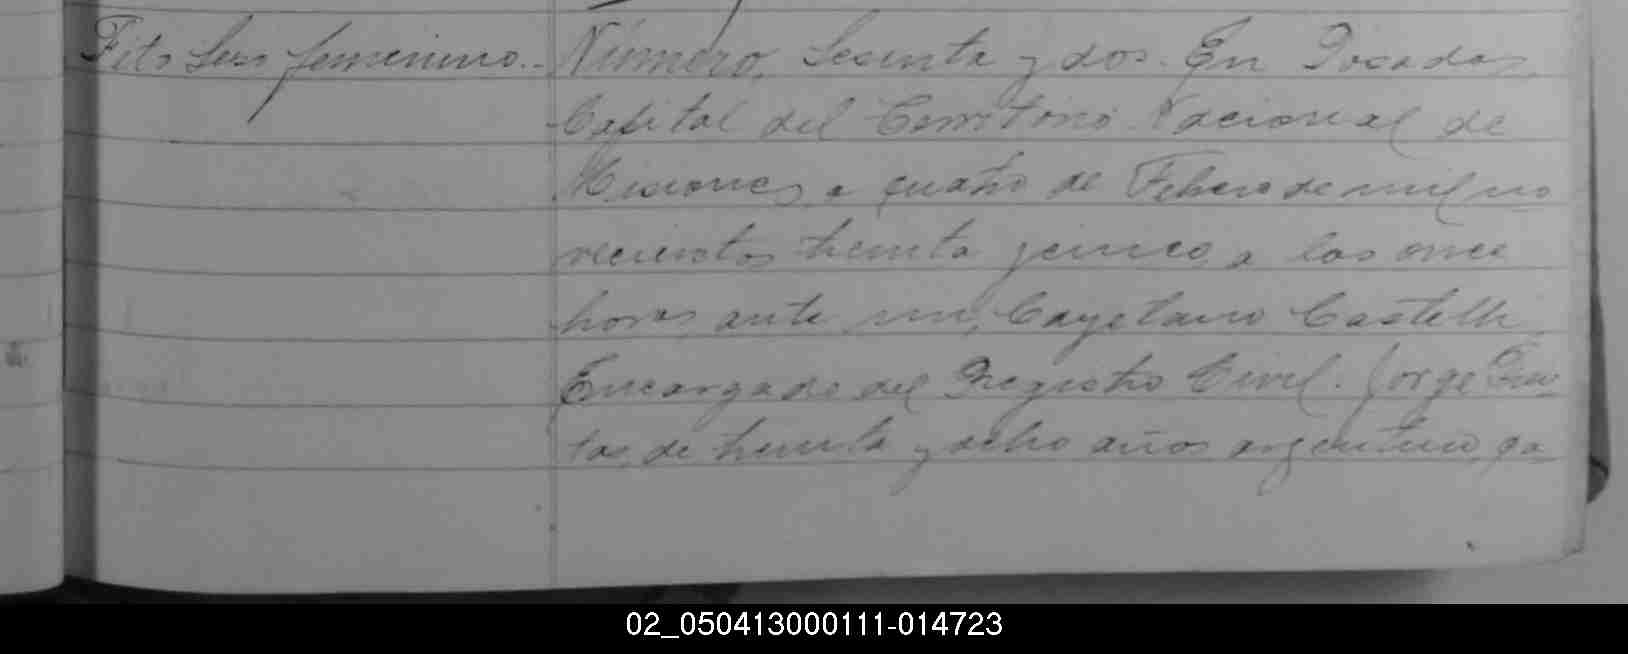 Feto Sexo femenino.- Número, Secenta y dos. En Posadas,
Capital del Territorio Nacional de
Misiones, a cuatro de Febrero de mil no
vecientos treinta y cinco, a las once
horas, ante mi, Cayetano Castelli
Encargado del Registro Civil. Jorge
tas, de treinta y ocho años argentino, ca
02_050413000111-014723